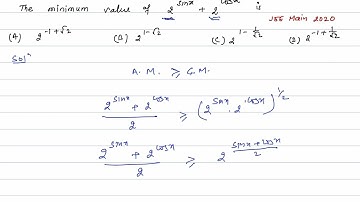 The minimum value of 2^sinx + 2^cosx is
JEE Main 2020
(A) 2^-1+√2 (B) 2^1-√2 (C) 2^1-1/√2 (D) 2^-1+1/√2
Solⁿ
A.M. ≥ G.M.
(2^sinx + 2^cosx)/2 ≥ (2^sinx · 2^cosx)^1/2
(2^sinx + 2^cosx)/2 ≥ 2^(sinx+cosx)/2